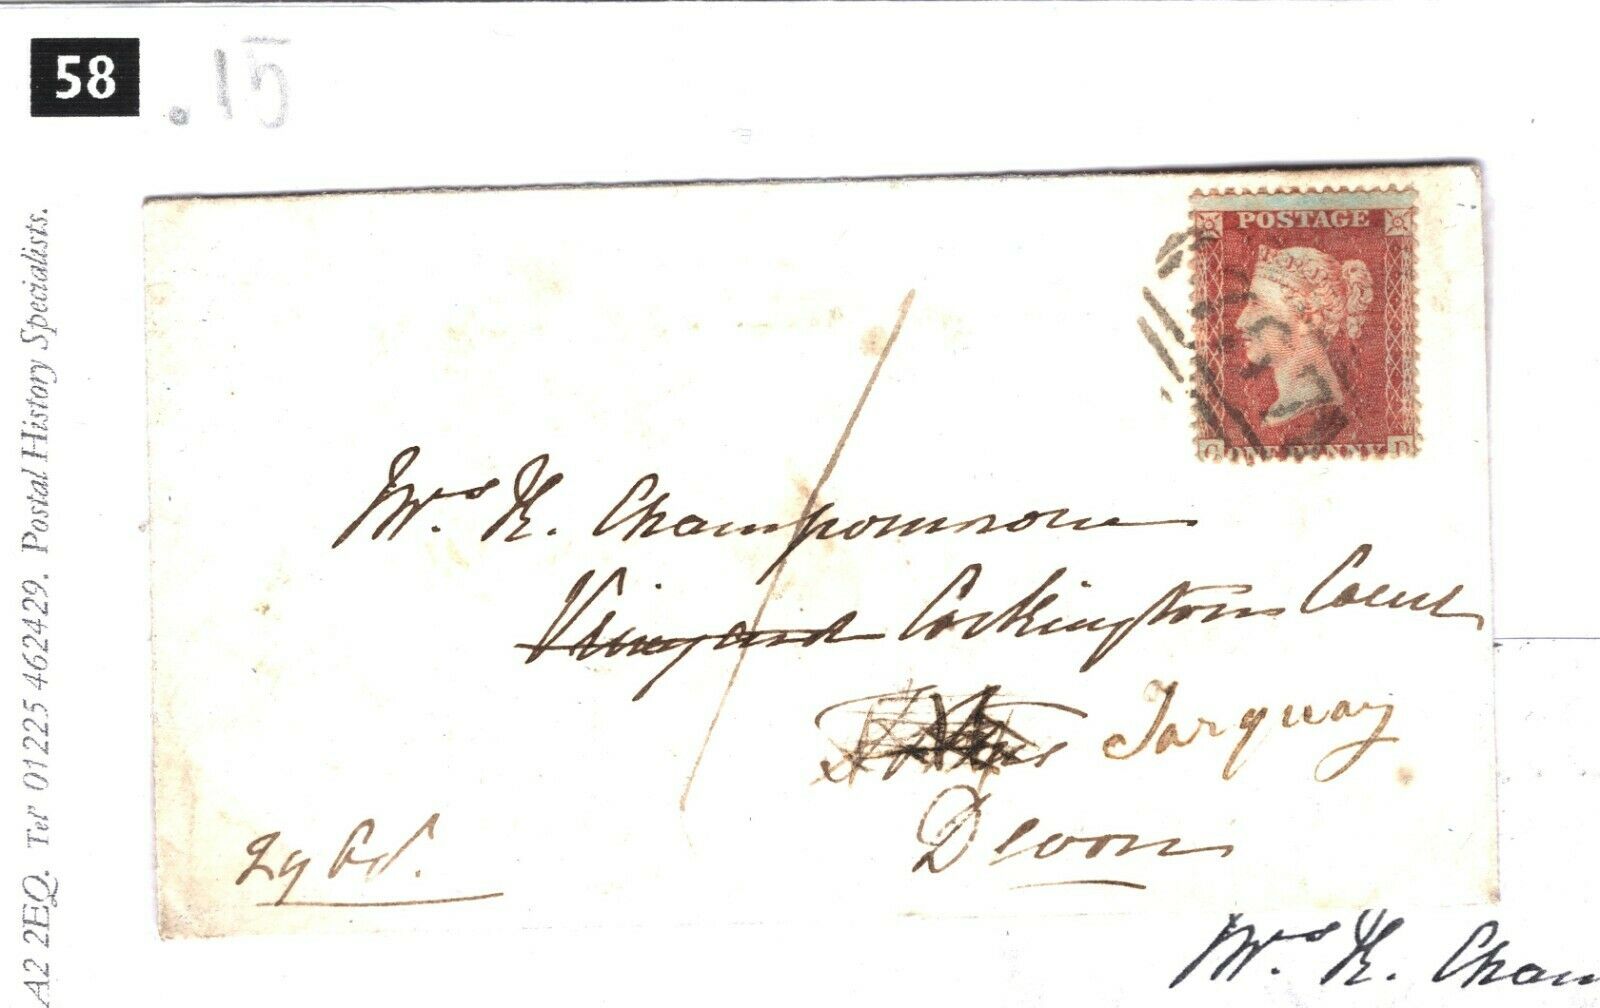 58
.15
A2 2EQ. Tel' 01225 462429. Postal History Specialists.
POSTAGE
ONE PENNY
G D
Mrs. H. Champernowne
Vineyard Cockington Court
Torquay
Devon
29 Oct.
Mrs. H. Cham